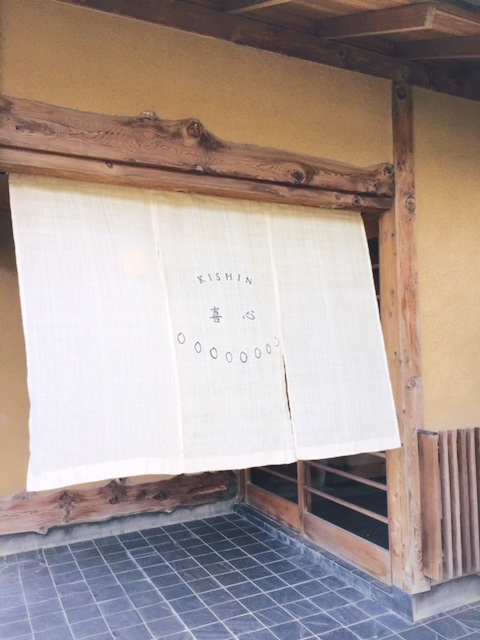 KISHIN
喜心